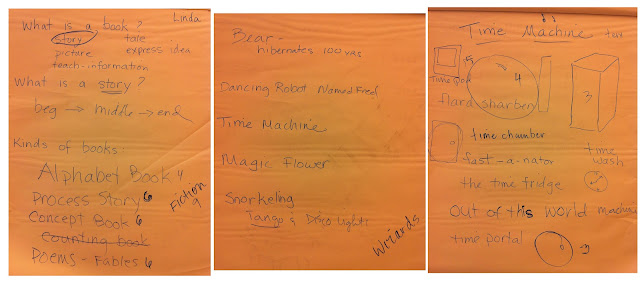 What is a book? Linda
story tale
picture express idea
teach-information
What is a story?
beg → middle → end
Kinds of books:
Alphabet Book 4
Process Story 6
Concept Book 6
Counting book
Poems - Fables 6
Fiction 9
Bear-
hibernates 100 yrs
Dancing Robot Named Fred
Time Machine
Magic Flower
Snorkeling
Tango & Disco Lights
Wizards
Time Machine
4
3
time chamber
fast-a-nator
time wash
the time fridge
out of this world machine
time portal